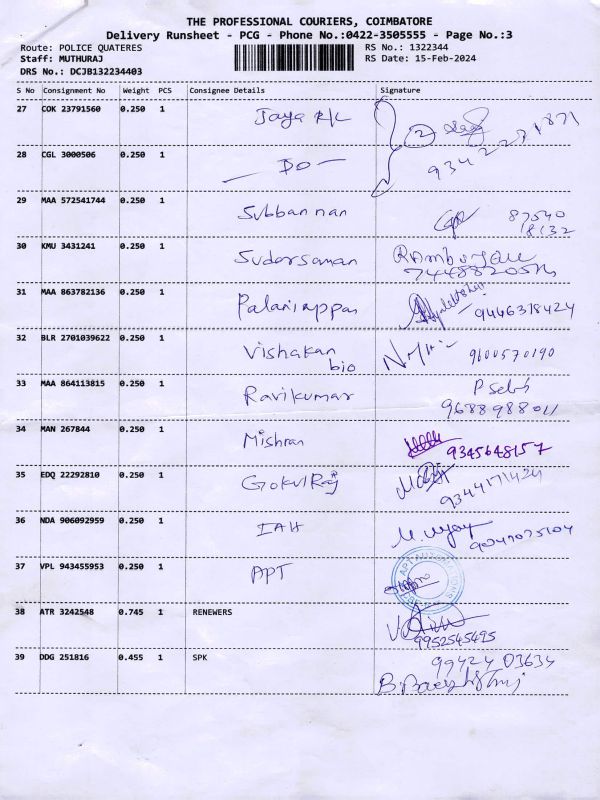 THE PROFESSIONAL COURIERS, COIMBATORE
Delivery Runsheet - PCG - Phone No.:0422-3505555 - Page No.:3
Route: POLICE QUATERES RS No.: 1322344
Staff: MUTHURAJ RS Date: 15-Feb-2024
DRS No.: DCJB132234403
S No Consignment No Weight PCS Consignee Details Signature
27 COK 23791560 0.250 1 Jaya R/L 2
28 CGL 3000506 0.250 1 — DO —
29 MAA 572541744 0.250 1 Subbannan 87540
18132
30 KMU 3431241 0.250 1 Sudarsaman
31 MAA 863782136 0.250 1 Palaniappan 9446318424
32 BLR 2701039622 0.250 1 Vishakan 9600570190
bio
33 MAA 864113815 0.250 1 Ravikumar
9688988011
34 MAN 267844 0.250 1 Mishran 9345648157
35 EDQ 22292810 0.250 1 GokulRaj 9344171424
36 NDA 906092959 0.250 1 IAH
37 VPL 943455953 0.250 1 APT
38 ATR 3242548 0.745 1 RENEWERS
9952545495
39 DDG 251816 0.455 1 SPK 99424 03634